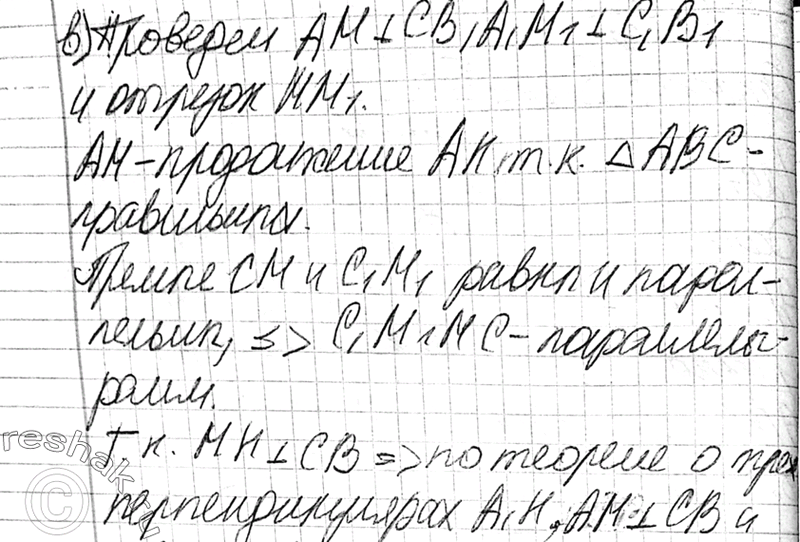 в) Проведем AM⊥CB, A₁M₁⊥C₁B₁
и отрезок MM₁.
AM – продолжение AH, т.к. △ABC –
правильный.
CM и C₁M₁ равны и парал-
лельны, => C₁M₁MC – параллело-
грамм.
Т.к. MH⊥CB => по теореме о трех
перпендикулярах A₁H, AM⊥CB и
reshak